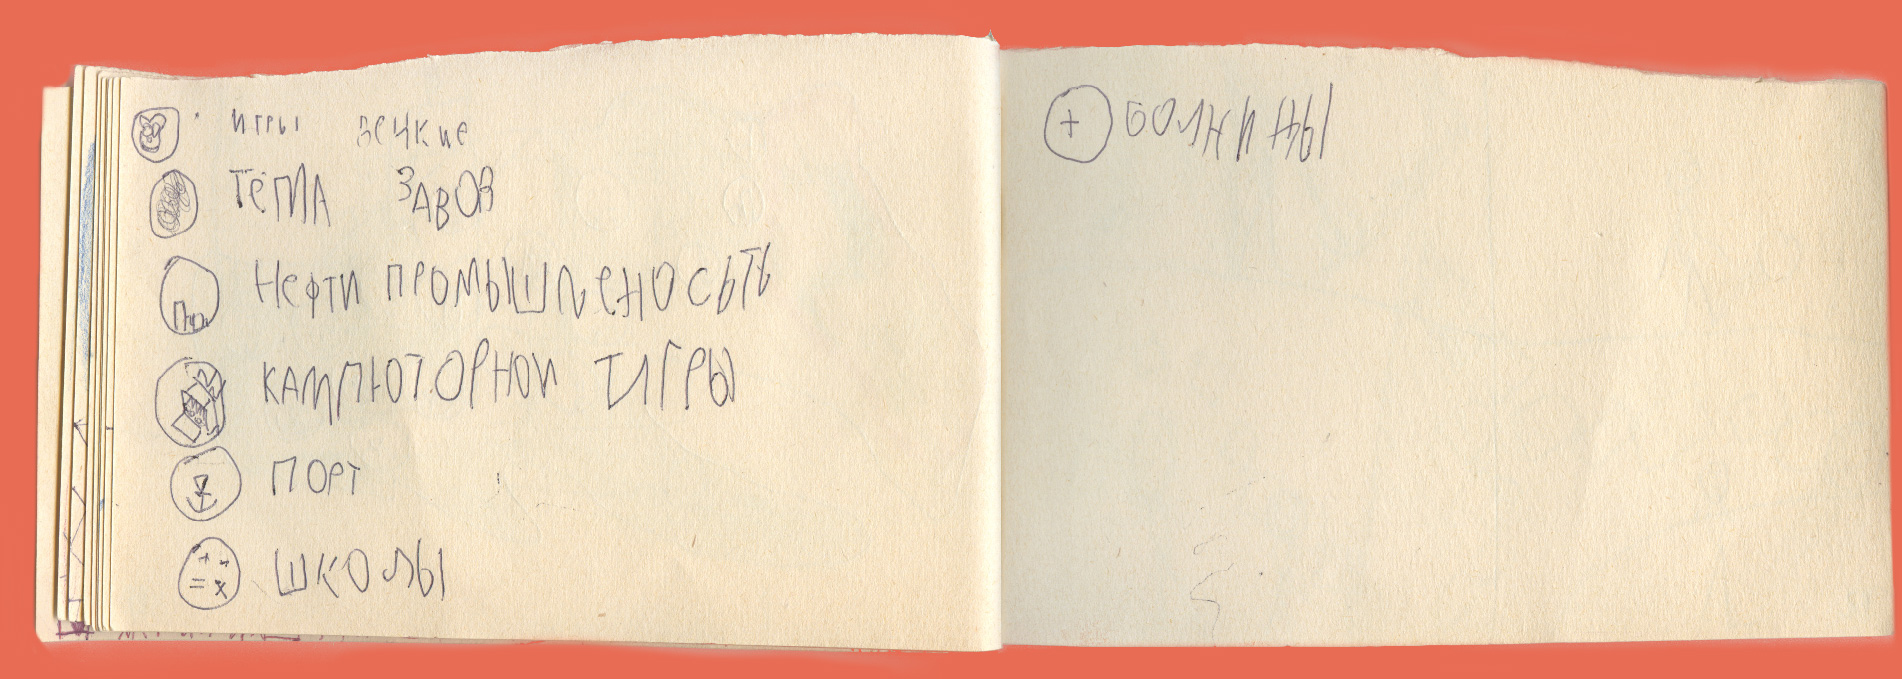 игры зечкие
тёпла завов
Нефти промышленосьть
кампюторной тигры
порт
школы
+ болниЦы
+ -
= x